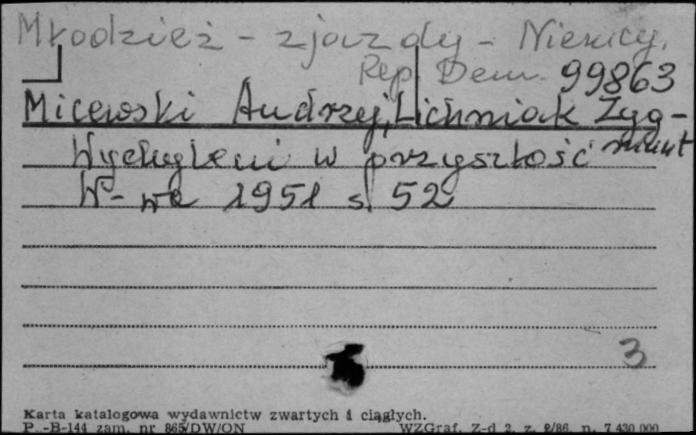 Młodzież - zjazdy - Niemcy.
Rep. Dem. 99863
Micewski Andrzej, Lichniak Zyg-
Wychyleni w przyszłość munt
W-wa 1951 s. 52
3
Karta katalogowa wydawnictw zwartych i ciągłych.
P. -B-144 zam. nr 865/DW/ON WZGraf. Z-d 2. z. 2/86. n. 7 430 000